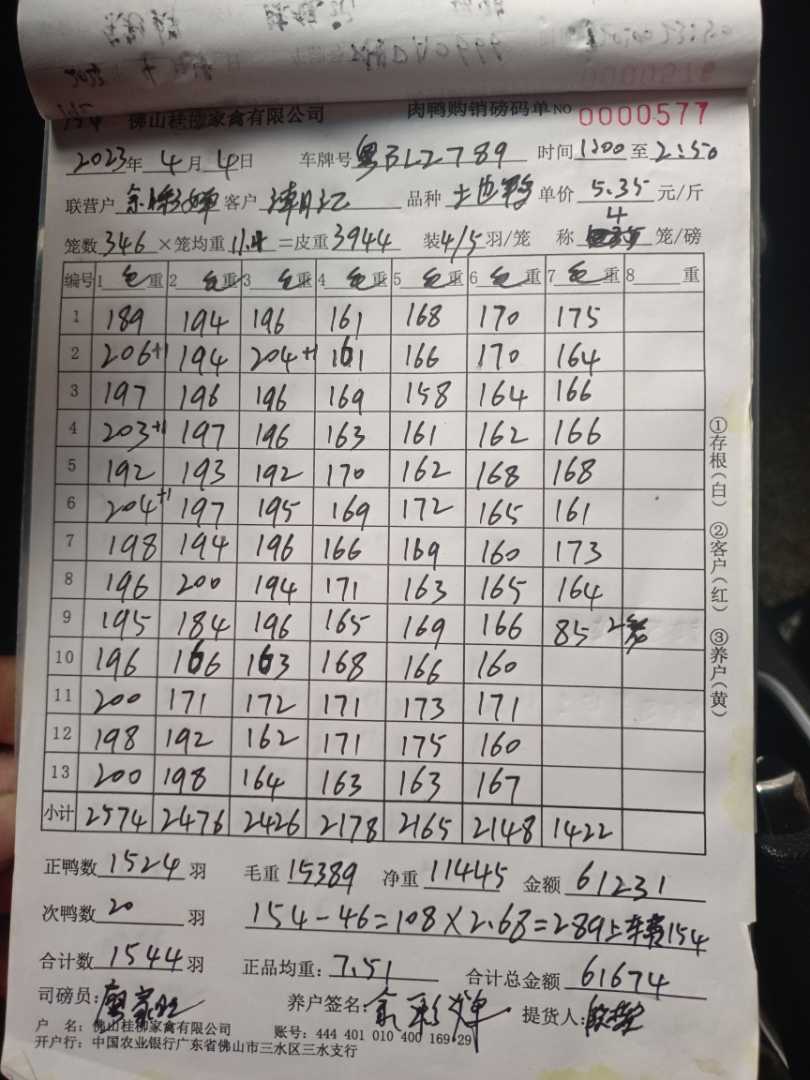 佛山桂柳家禽有限公司 肉鸭购销磅码单 NO 0000577
2023年 4月 4日 车牌号 粤BL2789 时间 1200 至 2:50
联营户 客户 品种 土边鸭 单价 5.35 元/斤
笼数 346 ×笼均重 11.4 =皮重 3944 装 4/5 羽/笼 称 4 笼/磅
编号 1 毛重 2 毛重 3 毛重 4 毛重 5 毛重 6 毛重 7 毛重 8 重
1 189 194 196 161 168 170 175
2 206+1 194 204+1 161 166 170 164
3 197 196 196 169 158 164 166
4 203+1 197 196 163 161 162 166
5 192 193 192 170 162 168 168
6 204+1 197 195 169 172 165 161
7 198 194 196 166 169 160 173
8 196 200 194 171 163 165 164
9 195 184 196 165 169 166 85 2笼
10 196 166 163 168 166 160
11 200 171 172 171 173 171
12 198 192 162 171 175 160
13 200 198 164 163 163 167
小计 2574 2476 2426 2178 2165 2148 1422
正鸭数 1524 羽 毛重 15389 净重 11445 金额 61231
次鸭数 20 羽 154-46=108×2.68=289上车费154
合计数 1544 羽 正品均重: 7.51 合计总金额 61674
司磅员: 养户签名: 提货人:
户 名: 佛山桂柳家禽有限公司 账号: 444 401 010 400 169 29
开户行: 中国农业银行广东省佛山市三水区三水支行
①存根(白) ②客户(红) ③养户(黄)